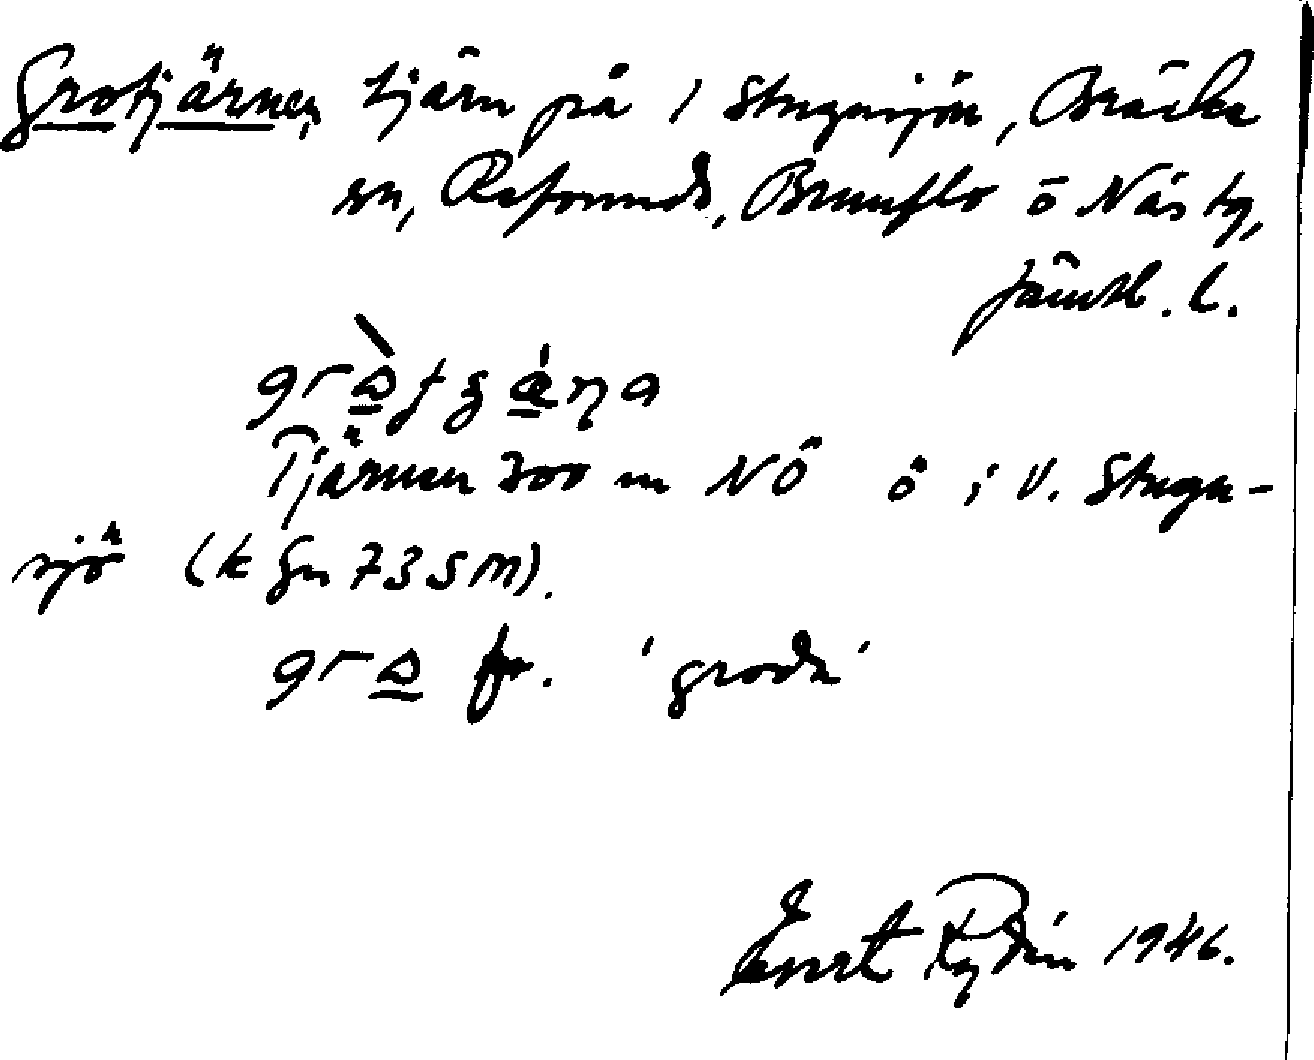 Grotjärnen, tjärn på 1 Stugusjön, Bräcke
sn, Refsunds, Brunflo o Näs tg,
Jämtl. l.
Tjärnen 300 m NÖ ö i V. Stugu-
sjö (k fn 735 m).
fr. 'groda'
Ernst Rydin 1946.